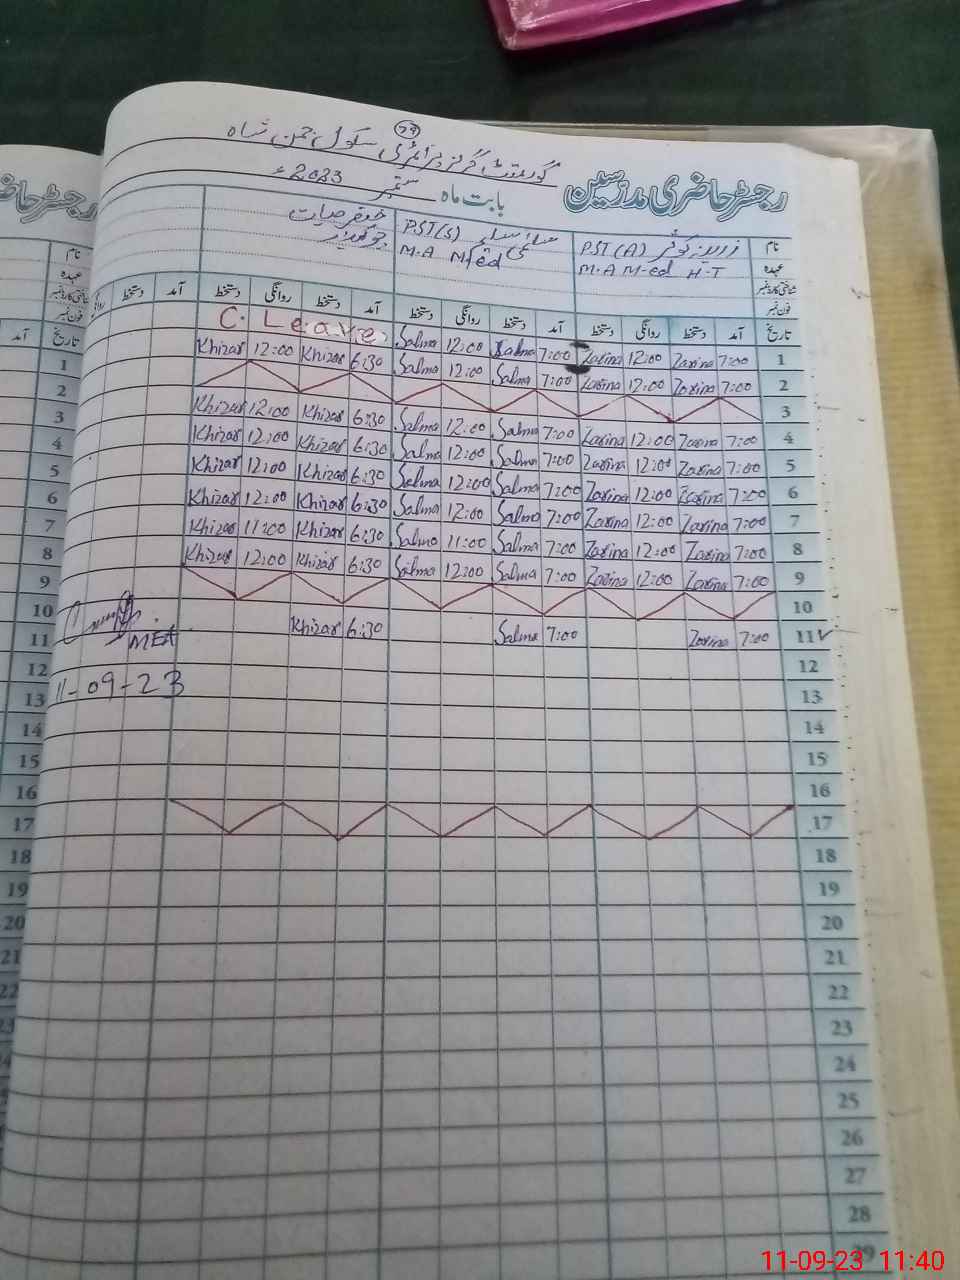 79
گورنمنٹ گرلز پرائمری سکول چمن شاہ
رجسٹر حاضری مدرسین بابت ماہ ستمبر 2023ء
نام
عہدہ
شناختی کارڈ نمبر
فون نمبر
زرینہ کوثر
PST (A)
M.A M-ed H-T
PST(S)
M.A M-ed
چوکیدار
تاریخ آمد دستخط روانگی دستخط آمد دستخط روانگی دستخط آمد دستخط روانگی دستخط آمد دستخط
C. Leave
Khizar 12:00 Khizar 6:30 Salma 12:00 Salma 7:00 Zarina 12:00 Zarina 7:00 1
Salma 12:00 Salma 7:00 Zarina 12:00 Zarina 7:00 2
3
Khizar 12:00 Khizar 6:30 Salma 12:00 Salma 7:00 Zarina 12:00 Zarina 7:00 4
Khizar 12:00 Khizar 6:30 Salma 12:00 Salma 7:00 Zarina 12:00 Zarina 7:00 5
Khizar 12:00 Khizar 6:30 Salma 12:00 Salma 7:00 Zarina 12:00 Zarina 7:00 6
Khizar 12:00 Khizar 6:30 Salma 12:00 Salma 7:00 Zarina 12:00 Zarina 7:00 7
Khizar 11:00 Khizar 6:30 Salma 11:00 Salma 7:00 Zarina 12:00 Zarina 7:00 8
Khizar 12:00 Khizar 6:30 Salma 12:00 Salma 7:00 Zarina 12:00 Zarina 7:00 9
10
MEA Khizar 6:30 Salma 7:00 Zarina 7:00 11
12
11-09-23 13
14
15
16
17
18
19
20
21
22
23
24
25
26
27
28
29
رجسٹر حاضری
نام
عہدہ
شناختی کارڈ نمبر
فون نمبر
تاریخ آمد
1
2
3
4
5
6
7
8
9
10
11
12
13
14
15
16
17
18
19
20
21
22
23
11-09-23 11:40